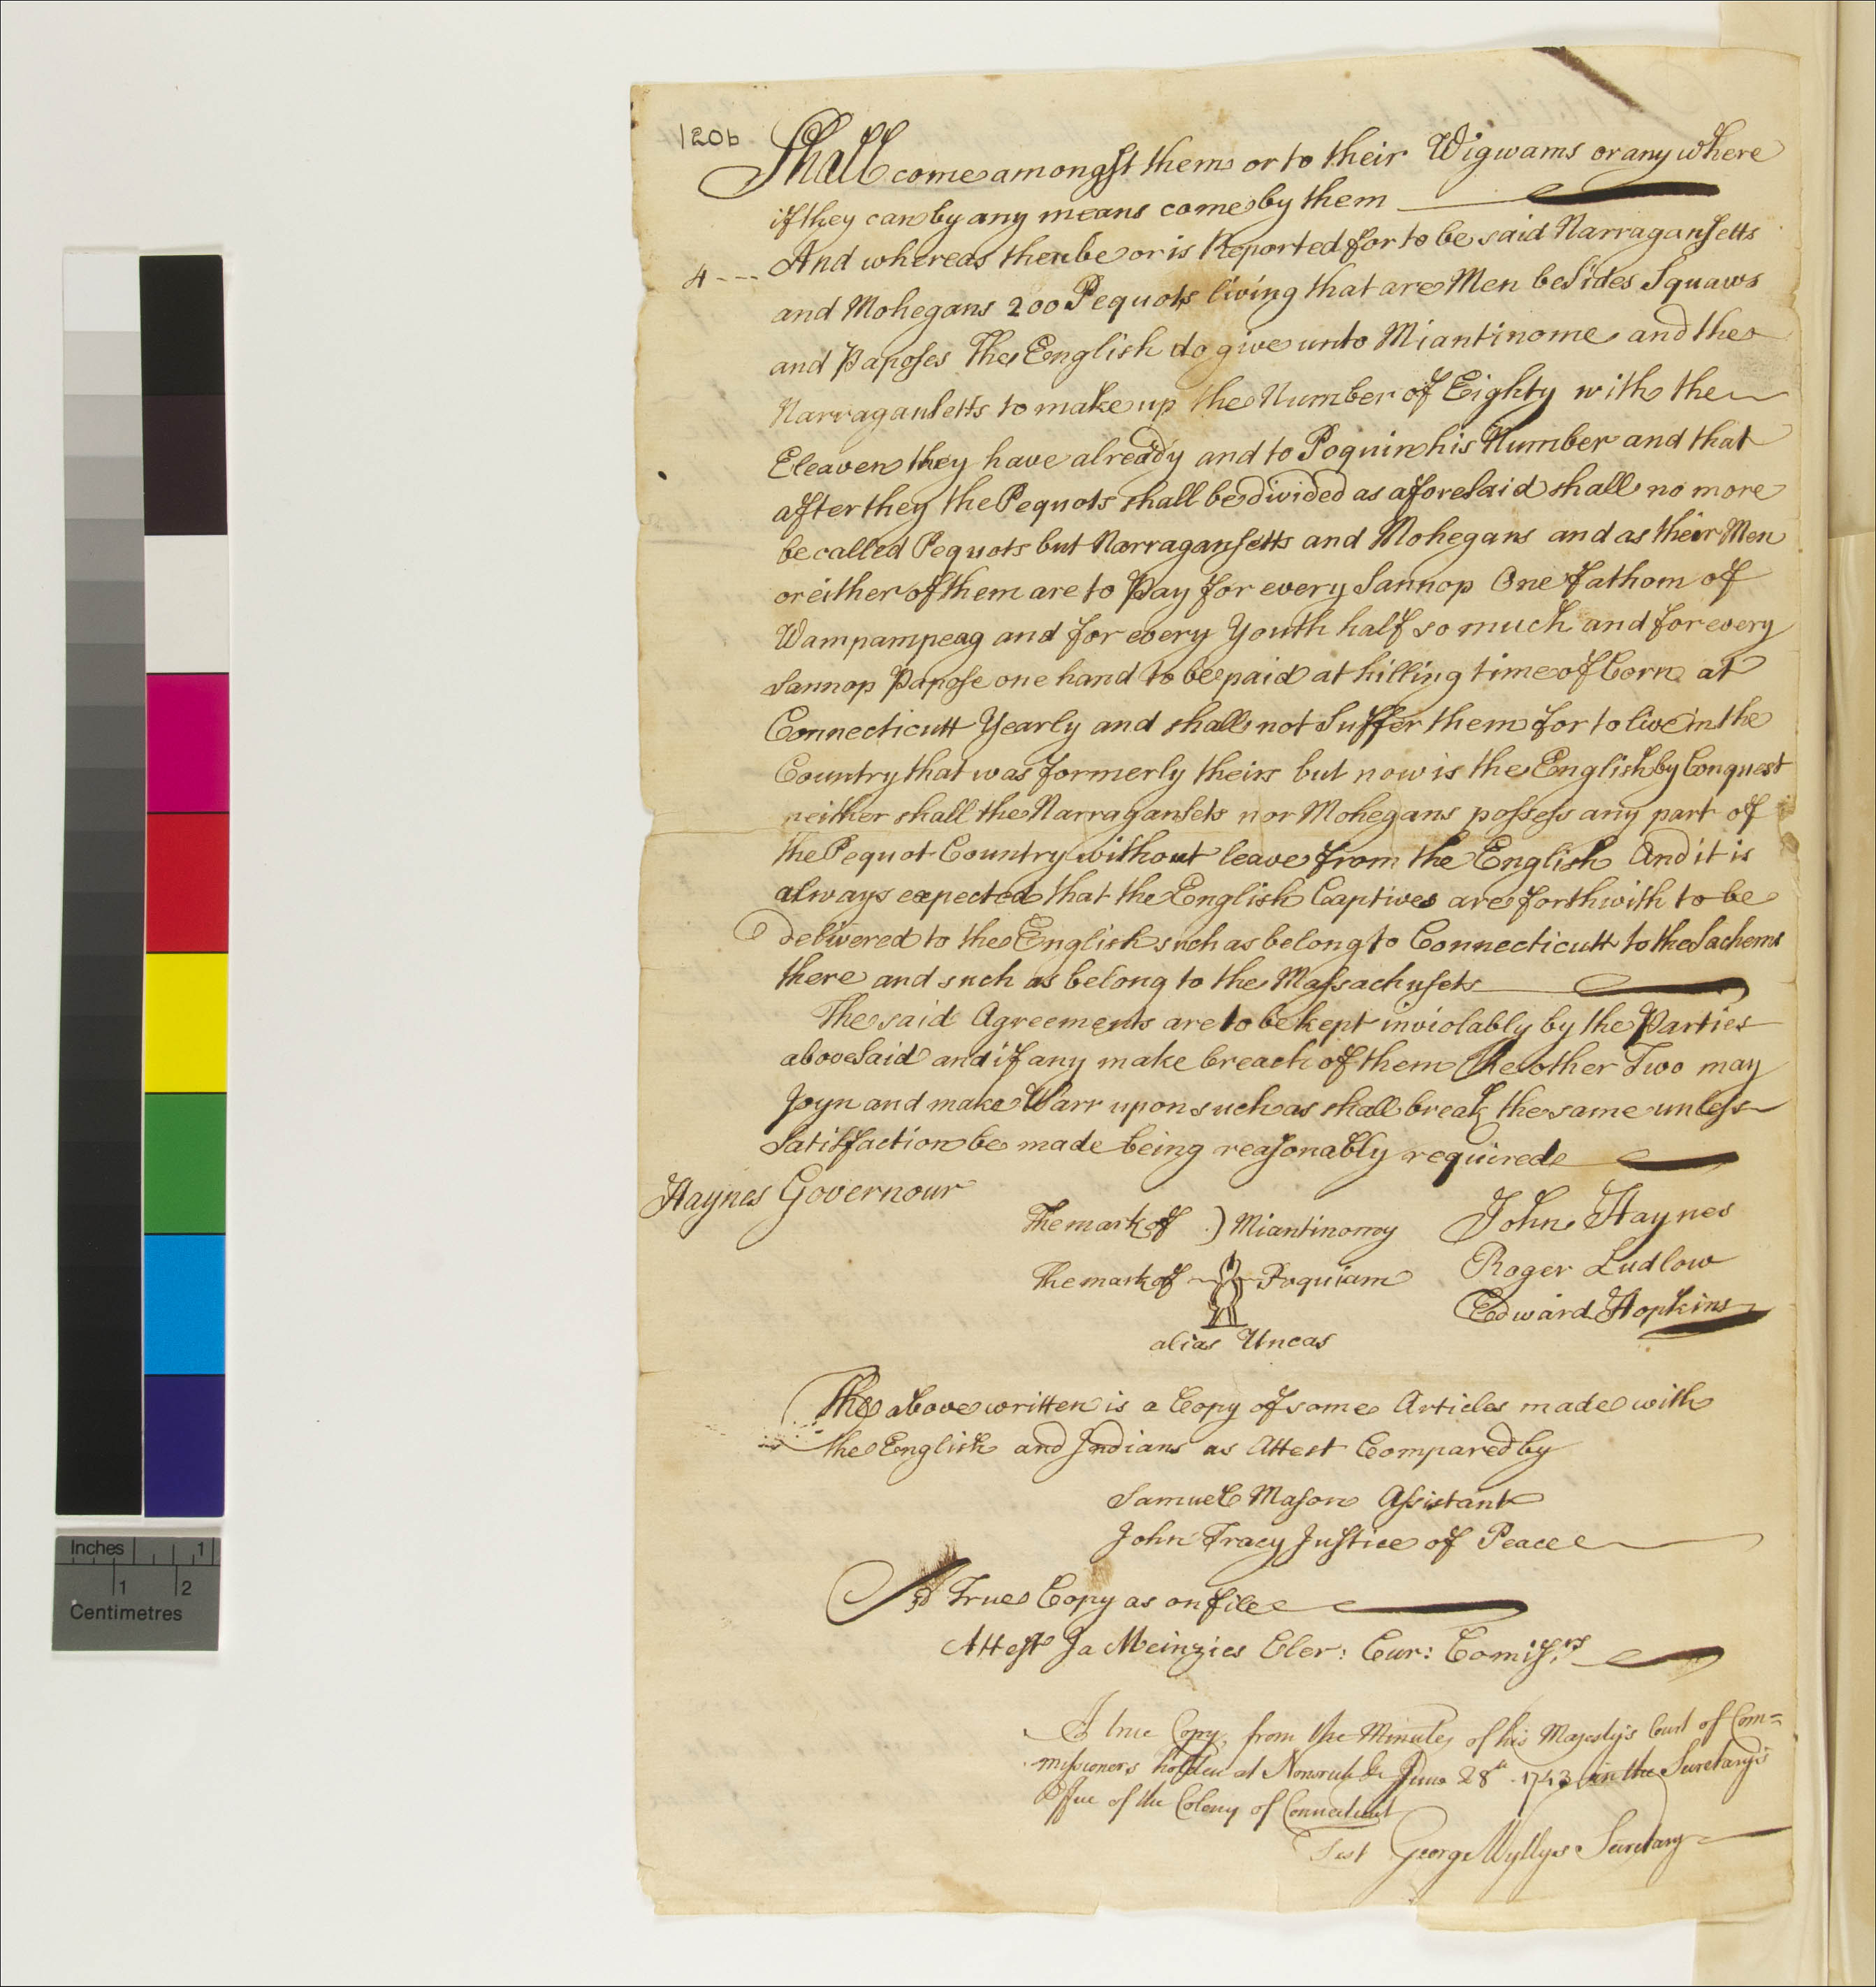 120b
Shall come amongst them or to their Wigwams or any where
if they can by any means come by them
4--- And whereas there be or is Reported for to be said Narragansetts
and Mohegans 200 Pequots living that are Men besides Squaws
and Paposes The English do give unto Miantinome and the
Narragansetts to make up the Number of Eighty with the
Eleaven they have already and to Poquim his Number and that
after they the Pequots shall be divided as aforesaid shall no more
be called Pequots but Narragansetts and Mohegans and as their Men
or either of them are to Pay for every Sannop One Fathom of
Wampampeag and for every Youth half so much and for every
Sannop Papose one hand to be paid at killing time of Corn at
Connecticutt Yearly and shall not Suffer them for to live in the
Country that was formerly theirs but now is the English by Conquest
neither shall the Narragansets nor Mohegans possess any part of
the Pequot Country without leave from the English And it is
always expected that the English Captives are forthwith to be
delivered to the English such as belong to Connecticutt to the Sachems
there and such as belong to the Massachusets
The said Agreements are to be kept inviolably by the Parties
abovesaid and if any make breach of them the other Two may
Joyn and make Warr upon such as shall break the same unless
Satisfaction be made being reasonably required
Haynes Governour
The mark of ) Miantinomy John Haynes
The mark of Poquiam Roger Ludlow
alias Uncas Edward Hopkins
The above written is a Copy of some Articles made with
the English and Indians as Attest Compared by
Samuel Mason Assistant
John Tracy Justice of Peace
A True Copy as on file
Attest Ja Meinzies Cler: Cur: Comiss.rs
A true Copy, from the Minutes of his Majesty's Court of Com=
missioners holden at Norwich &c June 28th 1743 in the Secretary's
Office of the Colony of Connecticut
Test George Wyllys Secretary
Inches 1
1 2
Centimetres